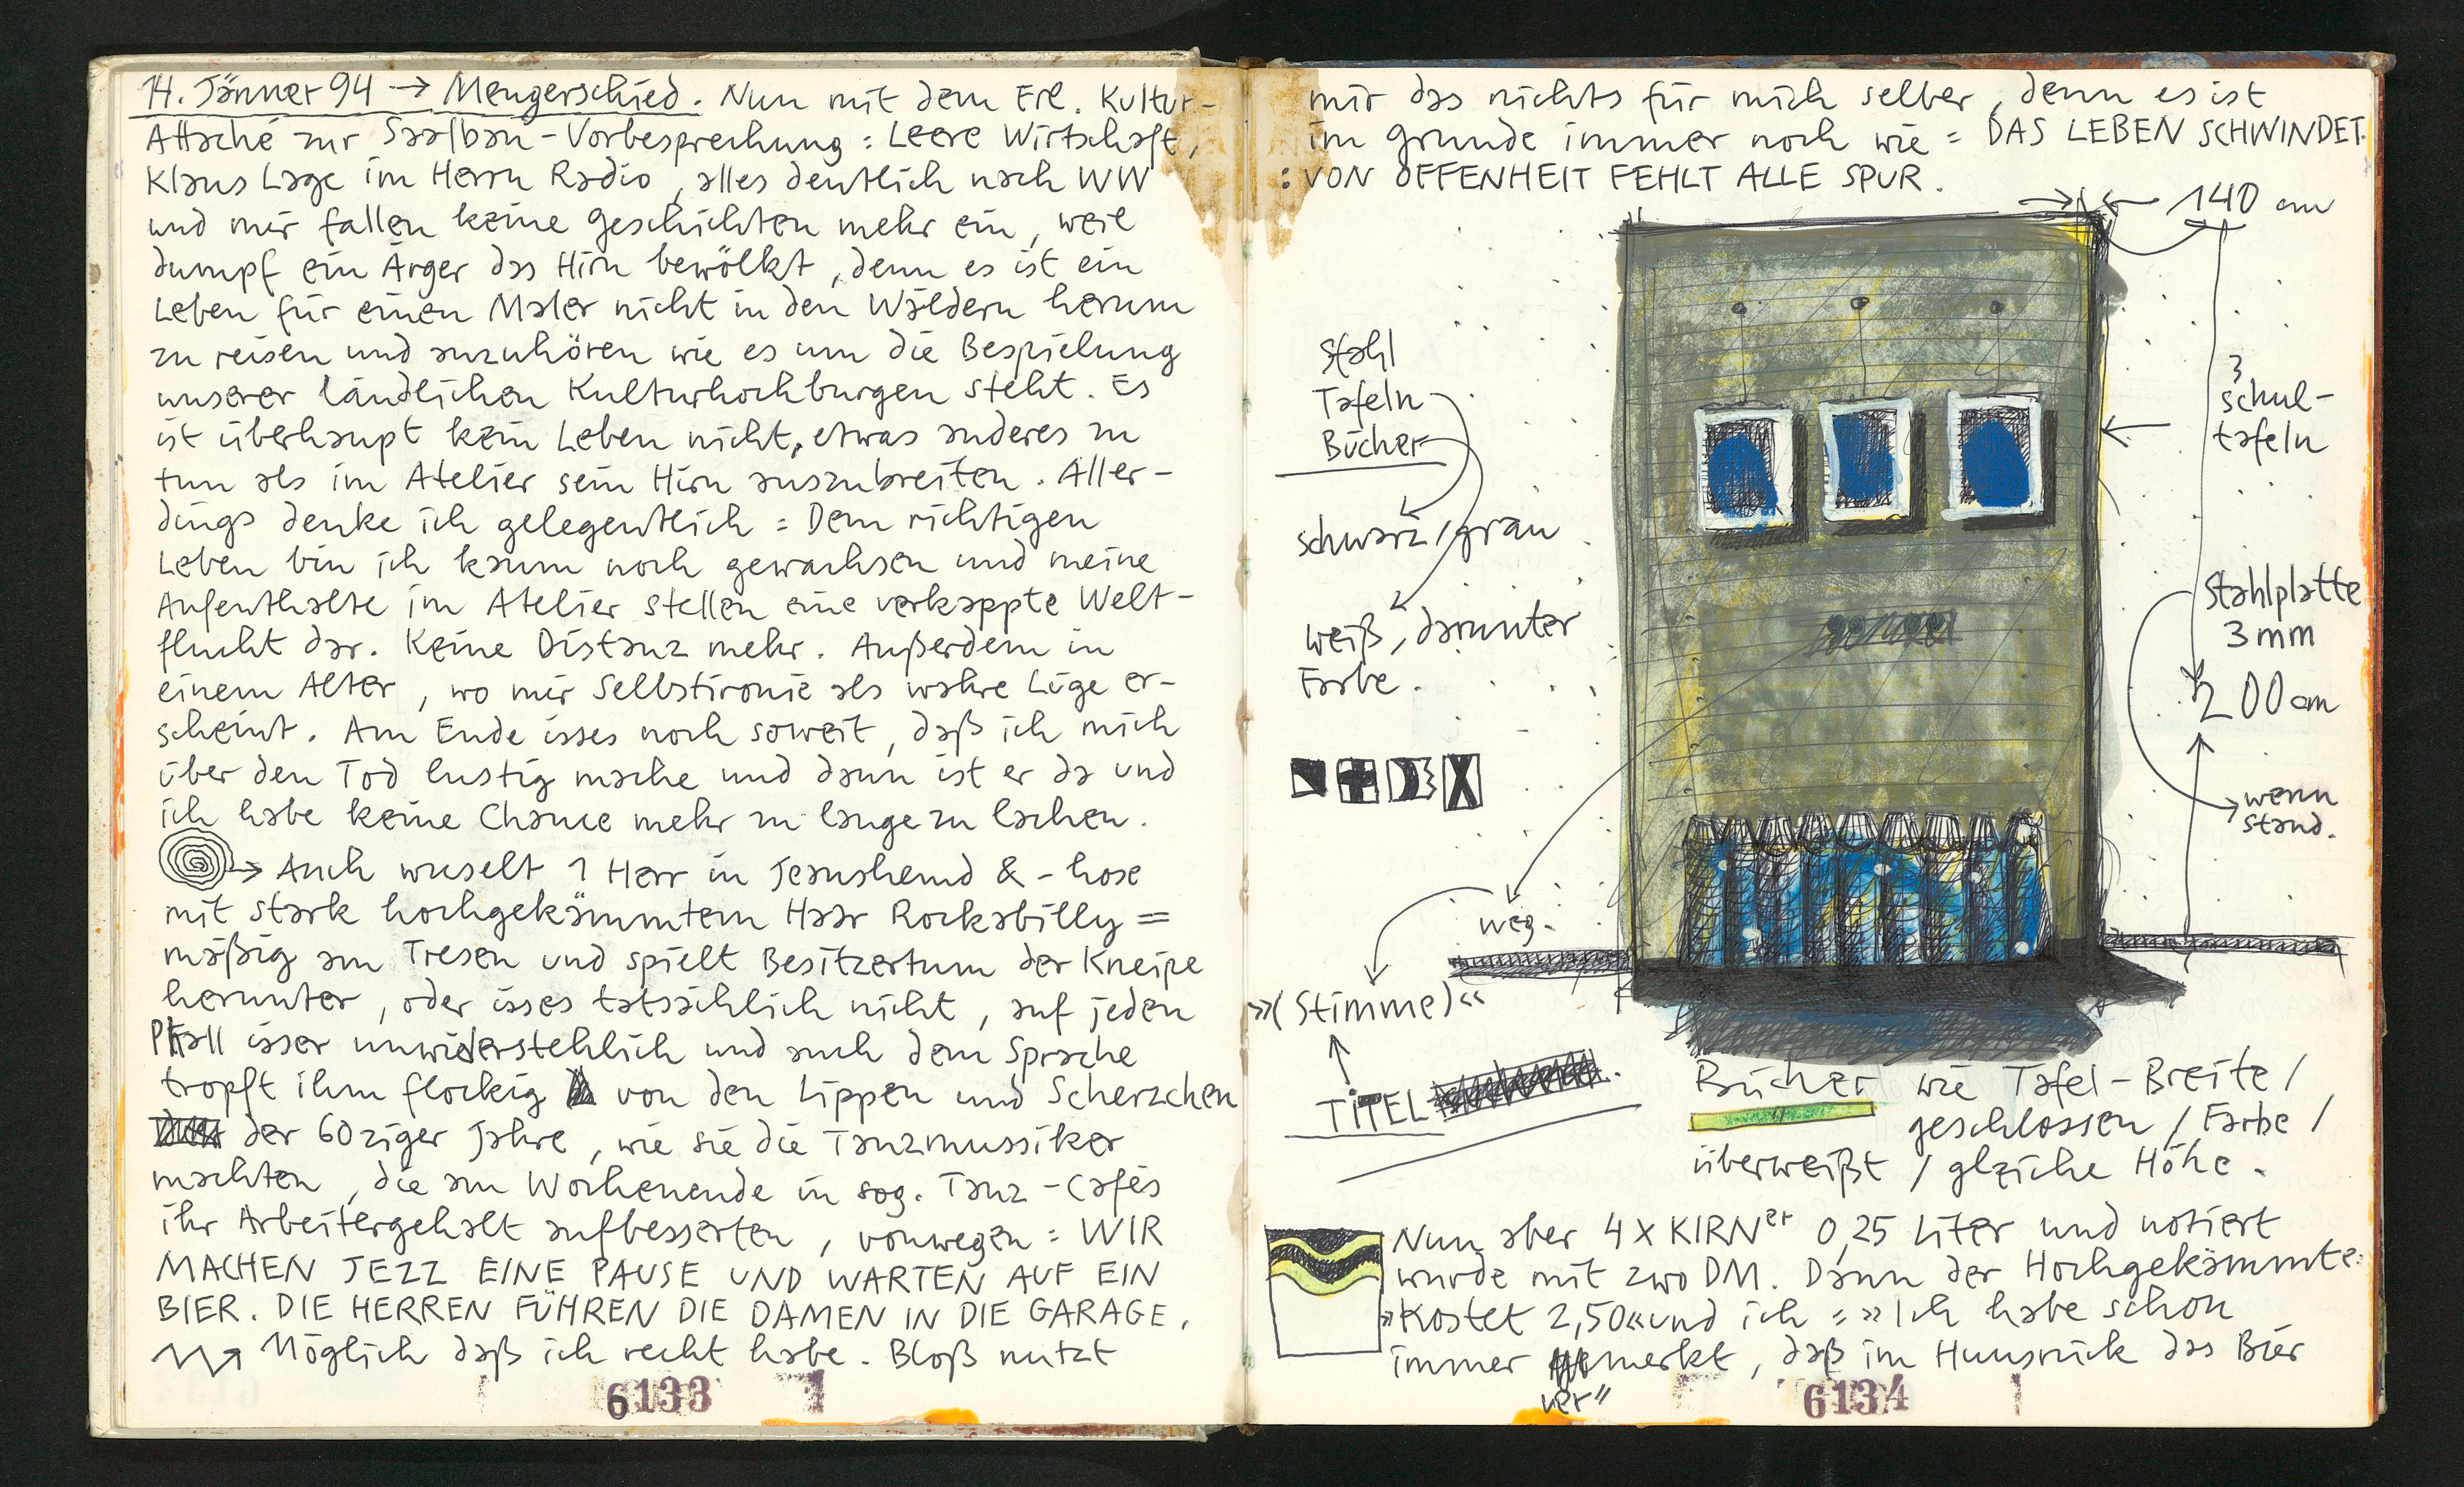 14. Jänner 94 → Mengerschied. Nun mit dem Frl. Kultur-
Attaché zur Saalbau-Vorbesprechung : Leere Wirtschaft,
Klaus Lage im Herrn Radio, alles deutlich nach WW
und mir fallen keine Geschichten mehr ein, weil
dumpf ein Ärger das Hirn bewölkt, denn es ist ein
Leben für einen Maler nicht in den Wäldern herum
zu reisen und anzuhören wie es um die Bespielung
unserer ländlichen Kulturhochburgen steht. Es
ist überhaupt kein Leben nicht, etwas anderes zu
tun als im Atelier sein Hirn auszubreiten. Aller-
dings denke ich gelegentlich : Dem richtigen
Leben bin ich kaum noch gewachsen und meine
Aufenthalte im Atelier stellen eine verkappte Welt-
flucht dar. Keine Distanz mehr. Außerdem in
einem Alter, wo mir Selbstironie als wahre Lüge er-
scheint. Am Ende isses noch soweit, daß ich mich
über den Tod lustig mache und dann ist er da und
ich habe keine Chance mehr zu lange zu lachen.
→ Auch wuselt 1 Herr in Jeanshemd & -hose
mit stark hochgekämmtem Haar Rockabilly=
mäßig am Tresen und spielt Besitzertum der Kneipe
herunter, oder isses tatsächlich nicht, auf jeden
Phall isser unwiderstehlich und auch dem Sprache
tropft ihm flockig von den Lippen und Scherzchen
der 60ziger Jahre, wie sie die Tanzmussiker
machten, die am Wochenende in sog. Tanz-Cafés
ihr Arbeitergehalt aufbesserten, vonwegen : WIR
MACHEN JEZZ EINE PAUSE UND WARTEN AUF EIN
BIER. DIE HERREN FÜHREN DIE DAMEN IN DIE GARAGE.
Möglich daß ich recht habe. Bloß nutzt
6133
mir das nichts für mich selber, denn es ist
im Grunde immer noch wie : DAS LEBEN SCHWINDET.
: VON OFFENHEIT FEHLT ALLE SPUR.
140 cm
Stahl
Tafeln
Bücher
3
Schul-
tafeln
schwarz/grau
weiß, darunter
Farbe.
Stahlplatte
3 mm
200 cm
wenn
Stand.
weg.
»(Stimme)«
TITEL
Bücher wie Tafel-Breite /
geschlossen / Farbe /
überweißt / gleiche Höhe.
Nun aber 4 x KIRNer 0,25 Liter und notiert
wurde mit zwo DM. Dann der Hochgekämmte:
»Kostet 2,50« und ich : »Ich habe schon
immer gemerkt, daß im Hunsrück das Bier
ver"
6134